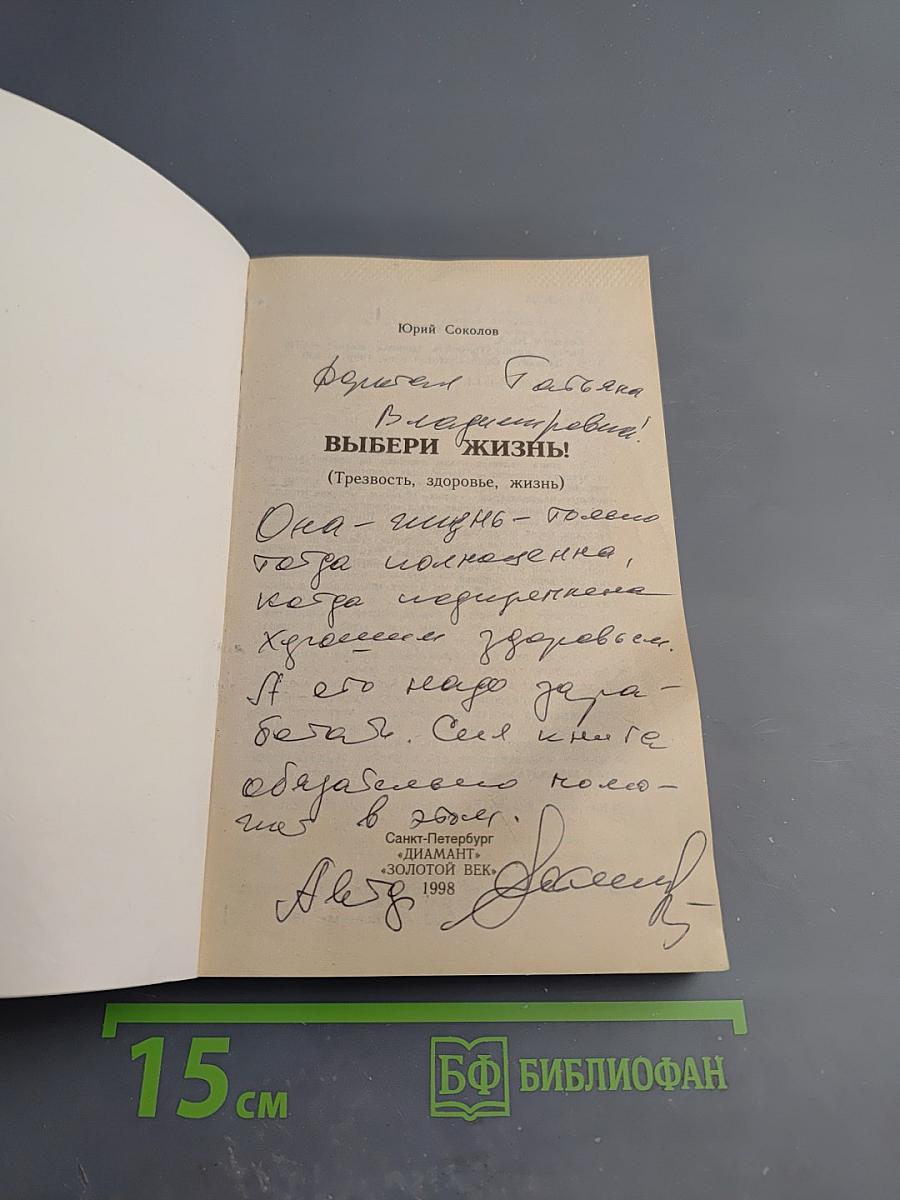 Юрий Соколов
Дорогая Татьяна
Владимировна!
ВЫБЕРИ ЖИЗНЬ!
(Трезвость, здоровье, жизнь)
Она – жизнь – только
тогда полноценна,
когда подкреплена
хорошим здоровьем.
А его надо зара-
ботать. Сия книга
обязательно помо-
жет в этом.
Санкт-Петербург
«ДИАМАНТ»
«ЗОЛОТОЙ ВЕК»
1998
15 см
БФ БИБЛИОФАН